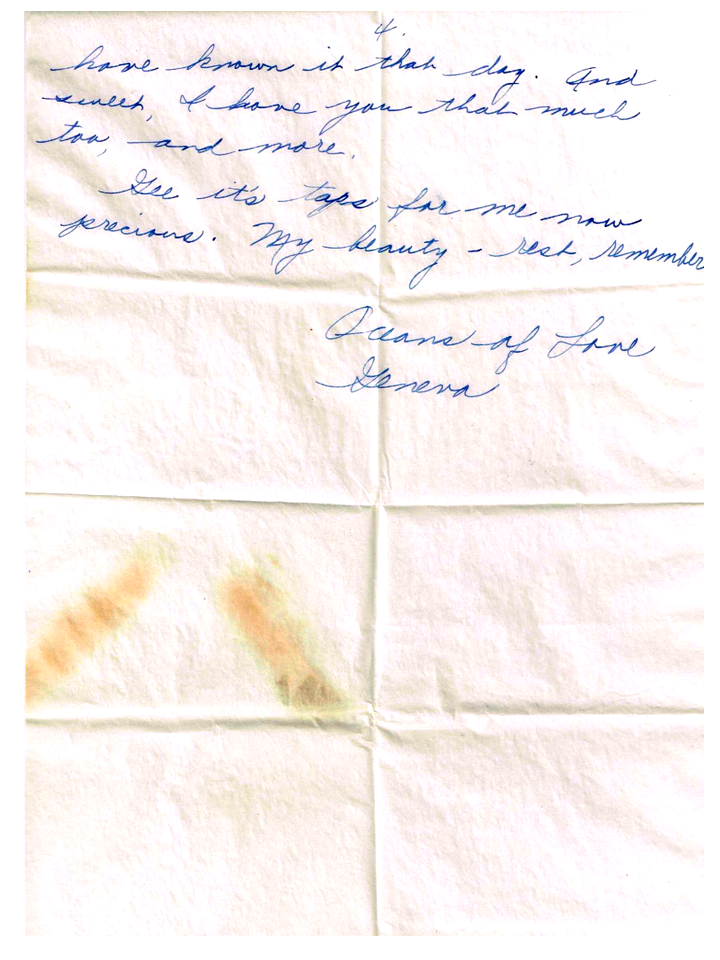 4.
have known it that day. And
sweet, I love you that much
too, and more.
Gee it's taps for me now
precious. My beauty - rest, remember
Oceans of Love
Geneva